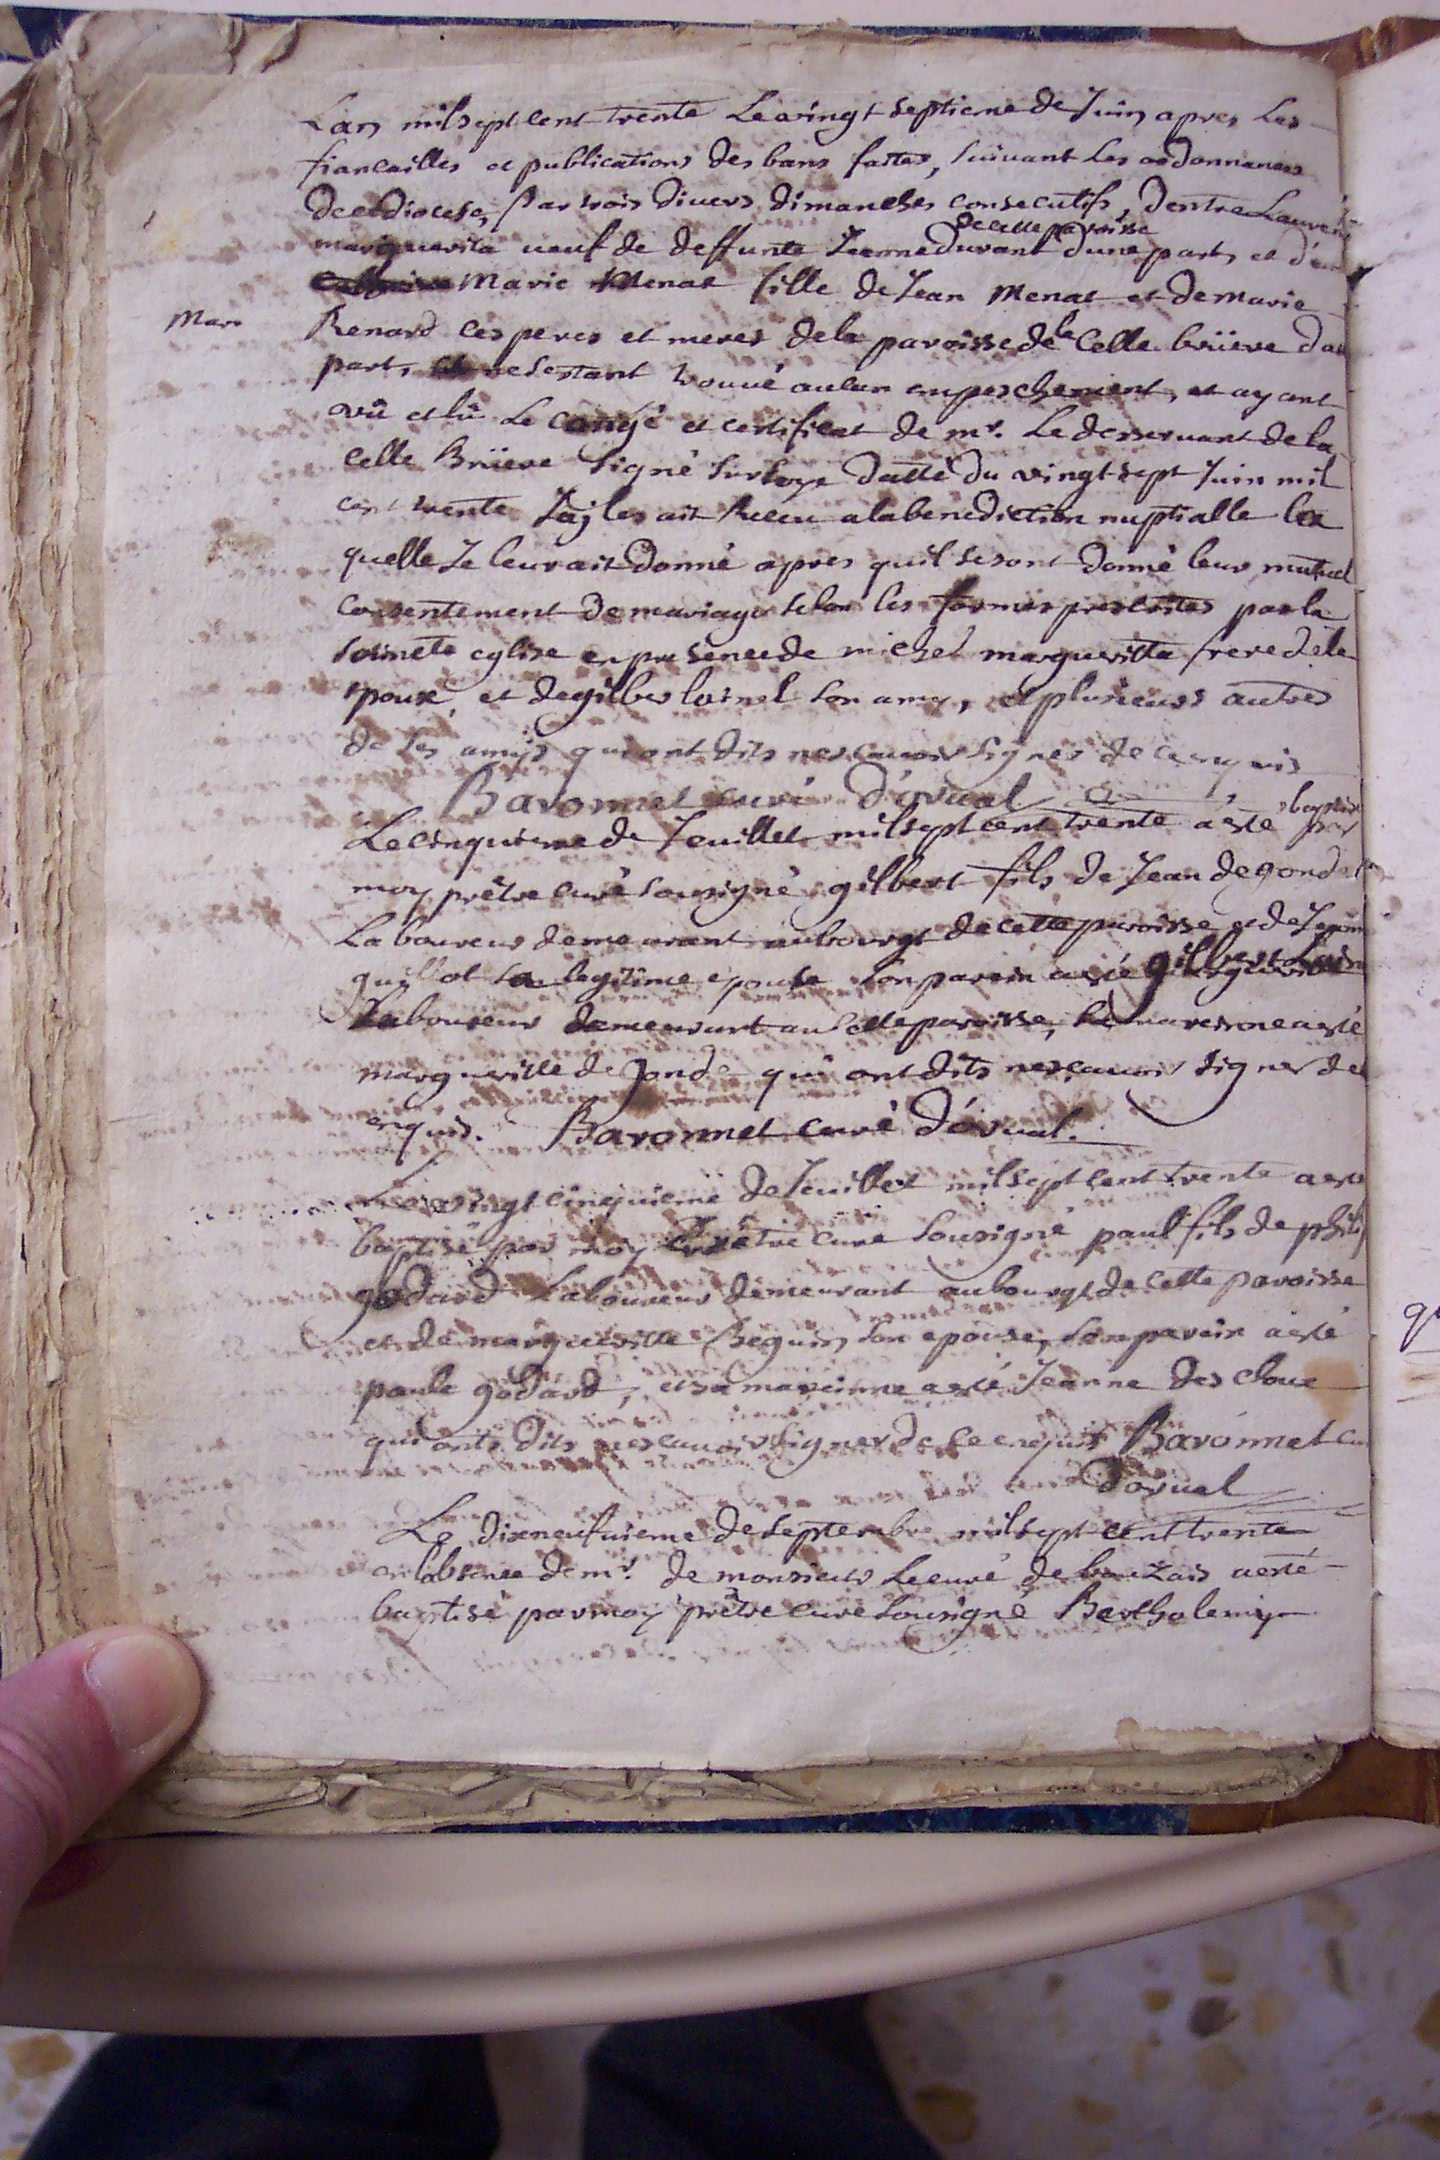 Lan mil sept cent trente Le vingt septieme de Juin apres Les
fiancailles et publications des bans faites, suivant Les ordonnances
de ce diocese, par trois divers dimanches consecutifs, dentre Laurent
de cette paroisse
marguerita veuf de deffunte Jeanne Durant d'une part, et d'entre
Marie Menat fille de Jean Menat et de Marie
Mar
Renard ces peres et meres de la paroisse de la Celle bruïere d'au
part, ne sestant trouvé aulcun empeschement, et ayant
vû et lû Le congé et certificat de mr. Le desservant de la
celle Bruiere signé datté du vingt sept Juin mil
cent trente Jay les ait Receu a la benediction nuptialle la
quelle Je leur ait donné apres quil se sont donné leur mutuel
consentement de mariage selon les formes prescrites par la
sainete eglise en presence de michel marguerita frere de le
spoux, et de gilber loisnel son amy, et plusieurs autres
de ses amys qui ont dits ne scavoir signer de ce enquis
Baronnet curé d'orval
Le cinquieme de Jeuillet mil sept cent trente a esté baptisé par
moy prêtre curé sousigné gilbert fils de Jean degond
Laboureur demeurant au bourgt de cette paroisse et de
quillot sa legitime epouse son parein a esté gilbert
Laboureur demeurant au cette paroisse, La mareinne a esté
margueritte de gond qui ont dits ne scavoir signer de
enquis. Baronnet curé d'orval.
Le vingt cinquieme de Jeuillet mil sept cent trente a esté
baptisé par moy prêtre curé sousigné paul fils de
godard Laboureur demeurant au bourgt de cette paroisse
et de marguerite Beguin son epouse, son parein a esté
paule godard, et sa mareinne a esté Jeanne des cloux
qui onts dits ne scavoir signer de ce enquis Baronnet cu
d'orval
Le dixneufuieme de septembre mil sept cent trente
en l'absence de mr. de monsieur Le curé de bouzais a esté
baptisé par moy prêtre curé sousigné Bartholemy